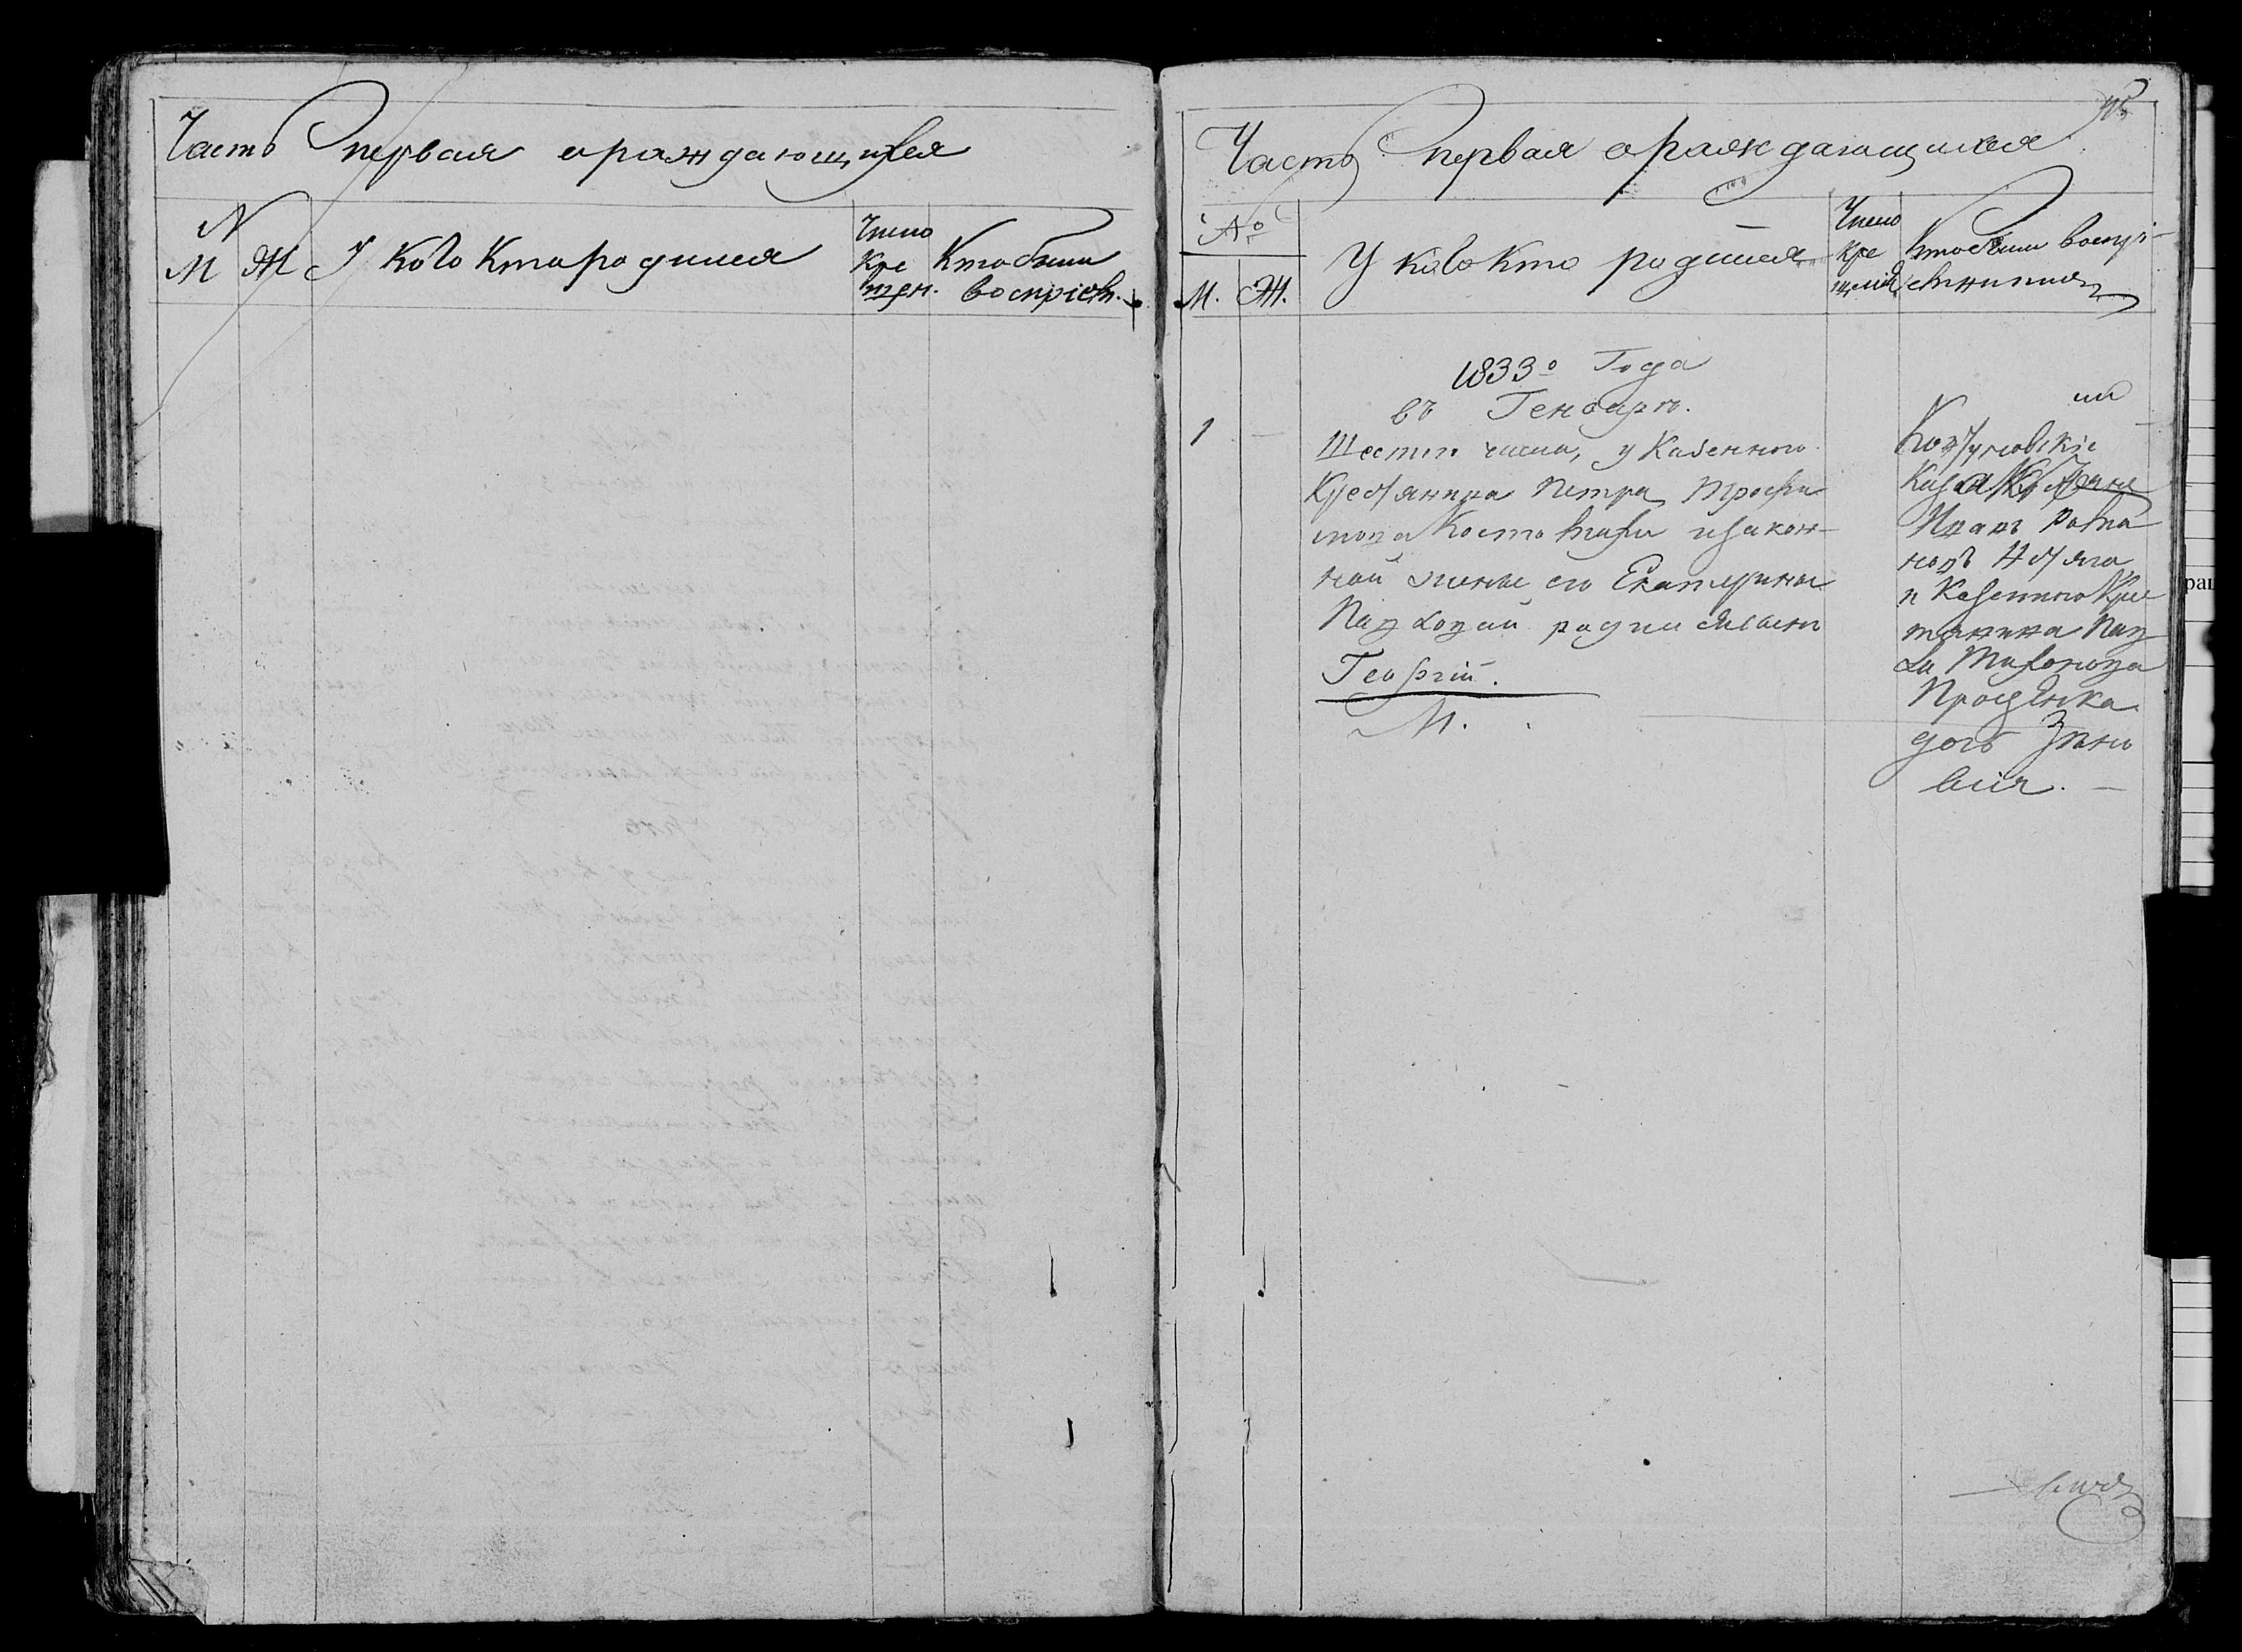 Часть первая о раждающихся
N
М Ж У кого кто родился
Число Крещен.
Кто были восприем.
Часть первая о раждающихся
№
М. Ж.
У кого кто родился
Число Крещенія
Кто были воспріемники
1833го Года
въ Генваре.
1
Шестго числа, у Казенного
Крестянина Петра Трофи
мова Косто и закон-
ной жены его Екатерины
Павловой родился сынъ
Георгій.
М.
Казакъ
Иванъ Рома
новъ
и Казенного Кре
стянина Пав
ла
Проценка
дочь Зино
вія.